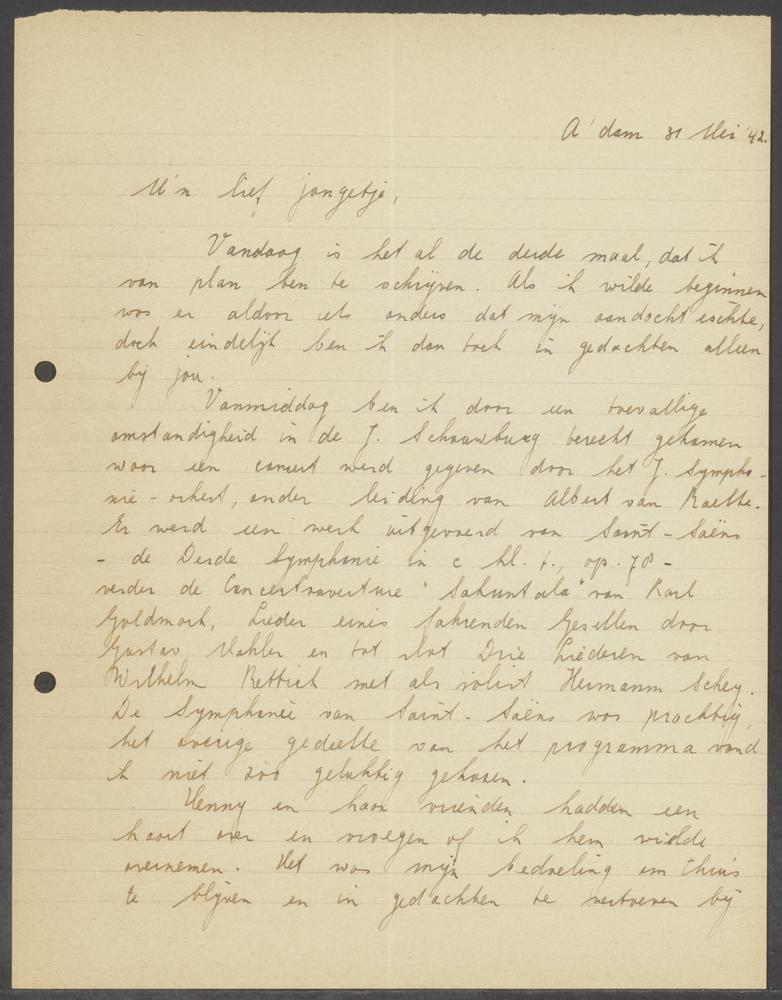 A'dam 31 Mei '42.
M'n lief jongetje,
Vandaag is het al de derde maal, dat ik
van plan ben te schrijven. Als ik wilde beginnen
was er aldoor iets anders dat mijn aandacht eischte,
doch eindelijk ben ik dan toch in gedachten alleen
bij jou.
Vanmiddag ben ik door een toevallige
omstandigheid in de J. Schouwburg terecht gekomen
waar een concert werd gegeven door het J. Sympho-
nie-orkest, onder leiding van Albert van Raalte.
Er werd een werk uitgevoerd van Saint-Saëns
- de Derde Symphonie in c kl. t., op. 78 -
verder de Concertouverture "Sakuntala" van Karl
Goldmark, Lieder eines fahrenden Gesellen door
Gustav Mahler en tot slot Drie Liederen van
Wilhelm Rettich met als solist Hermann Schey.
De Symphonie van Saint-Saëns was prachtig,
het overige gedeelte van het programma vond
ik niet zoo gelukkig gekozen.
Henny en haar vrienden hadden een
kaart over en vroegen of ik hem wilde
overnemen. Het was mijn bedoeling om thuis
te blijven en in gedachten te vertoeven bij